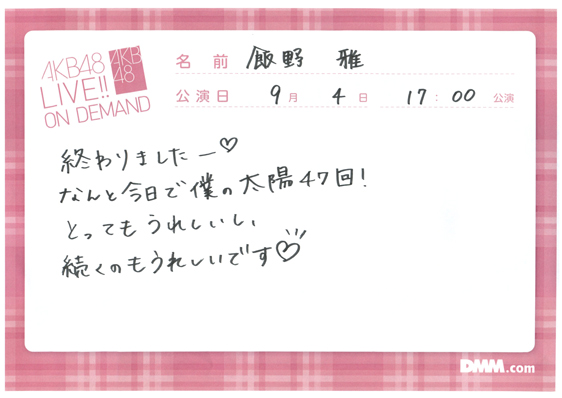 AKB48
LIVE!!
ON DEMAND
AKB
48
名前 飯野 雅
公演日 9月 4日 17:00 公演
終わりましたー♡
なんと今日で僕の太陽47回!
とってもうれしいし、
続くのもうれしいです♡
DMM.com